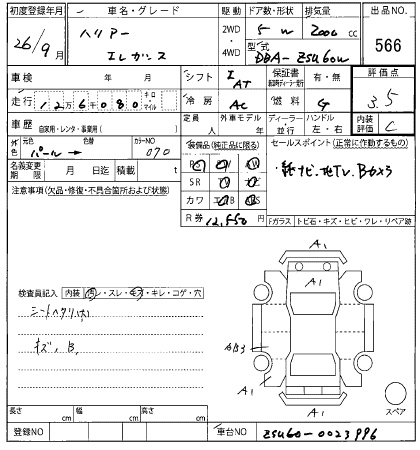 初度登録年月 車名・グレード 駆動 ドア数・形状 排気量 出品NO.
26/9月 ハリアー エレガンス 2WD 4WD 5 W 2000 cc 566
型式 DBA-ZSU60W
車検 年 月 シフト I AT 保証書 有・無 評価点 3.5
走行 126080 キロ・マイル 冷房 AC 燃料 G 内装評価 C
車歴 自家用・レンタ・事業用( ) 定員 人 外車モデル 年 ディーラー・並行 ハンドル 左・右
外色 元色 パール 色替 カラーNO 070 装備品(純正品に限る) セールスポイント(正常に作動するもの)
名義変更期限 月 日迄 積載 t SR カワ ナビ.地TV.Bカメラ
R券 12,550 円
注意事項(欠品・修復・不具合箇所および状態) Fガラス トビ石・キズ・ヒビ・ワレ・リペア跡
検査員記入 内装 汚レ・スレ・キズ・キレ・コゲ・穴
シートヘタリ(大)
キズ, B,
A1
A1
AB3
A1
A1
A1
スペア
長さ cm 幅 cm 高さ cm
登録NO 車台NO ZSU60-0023996